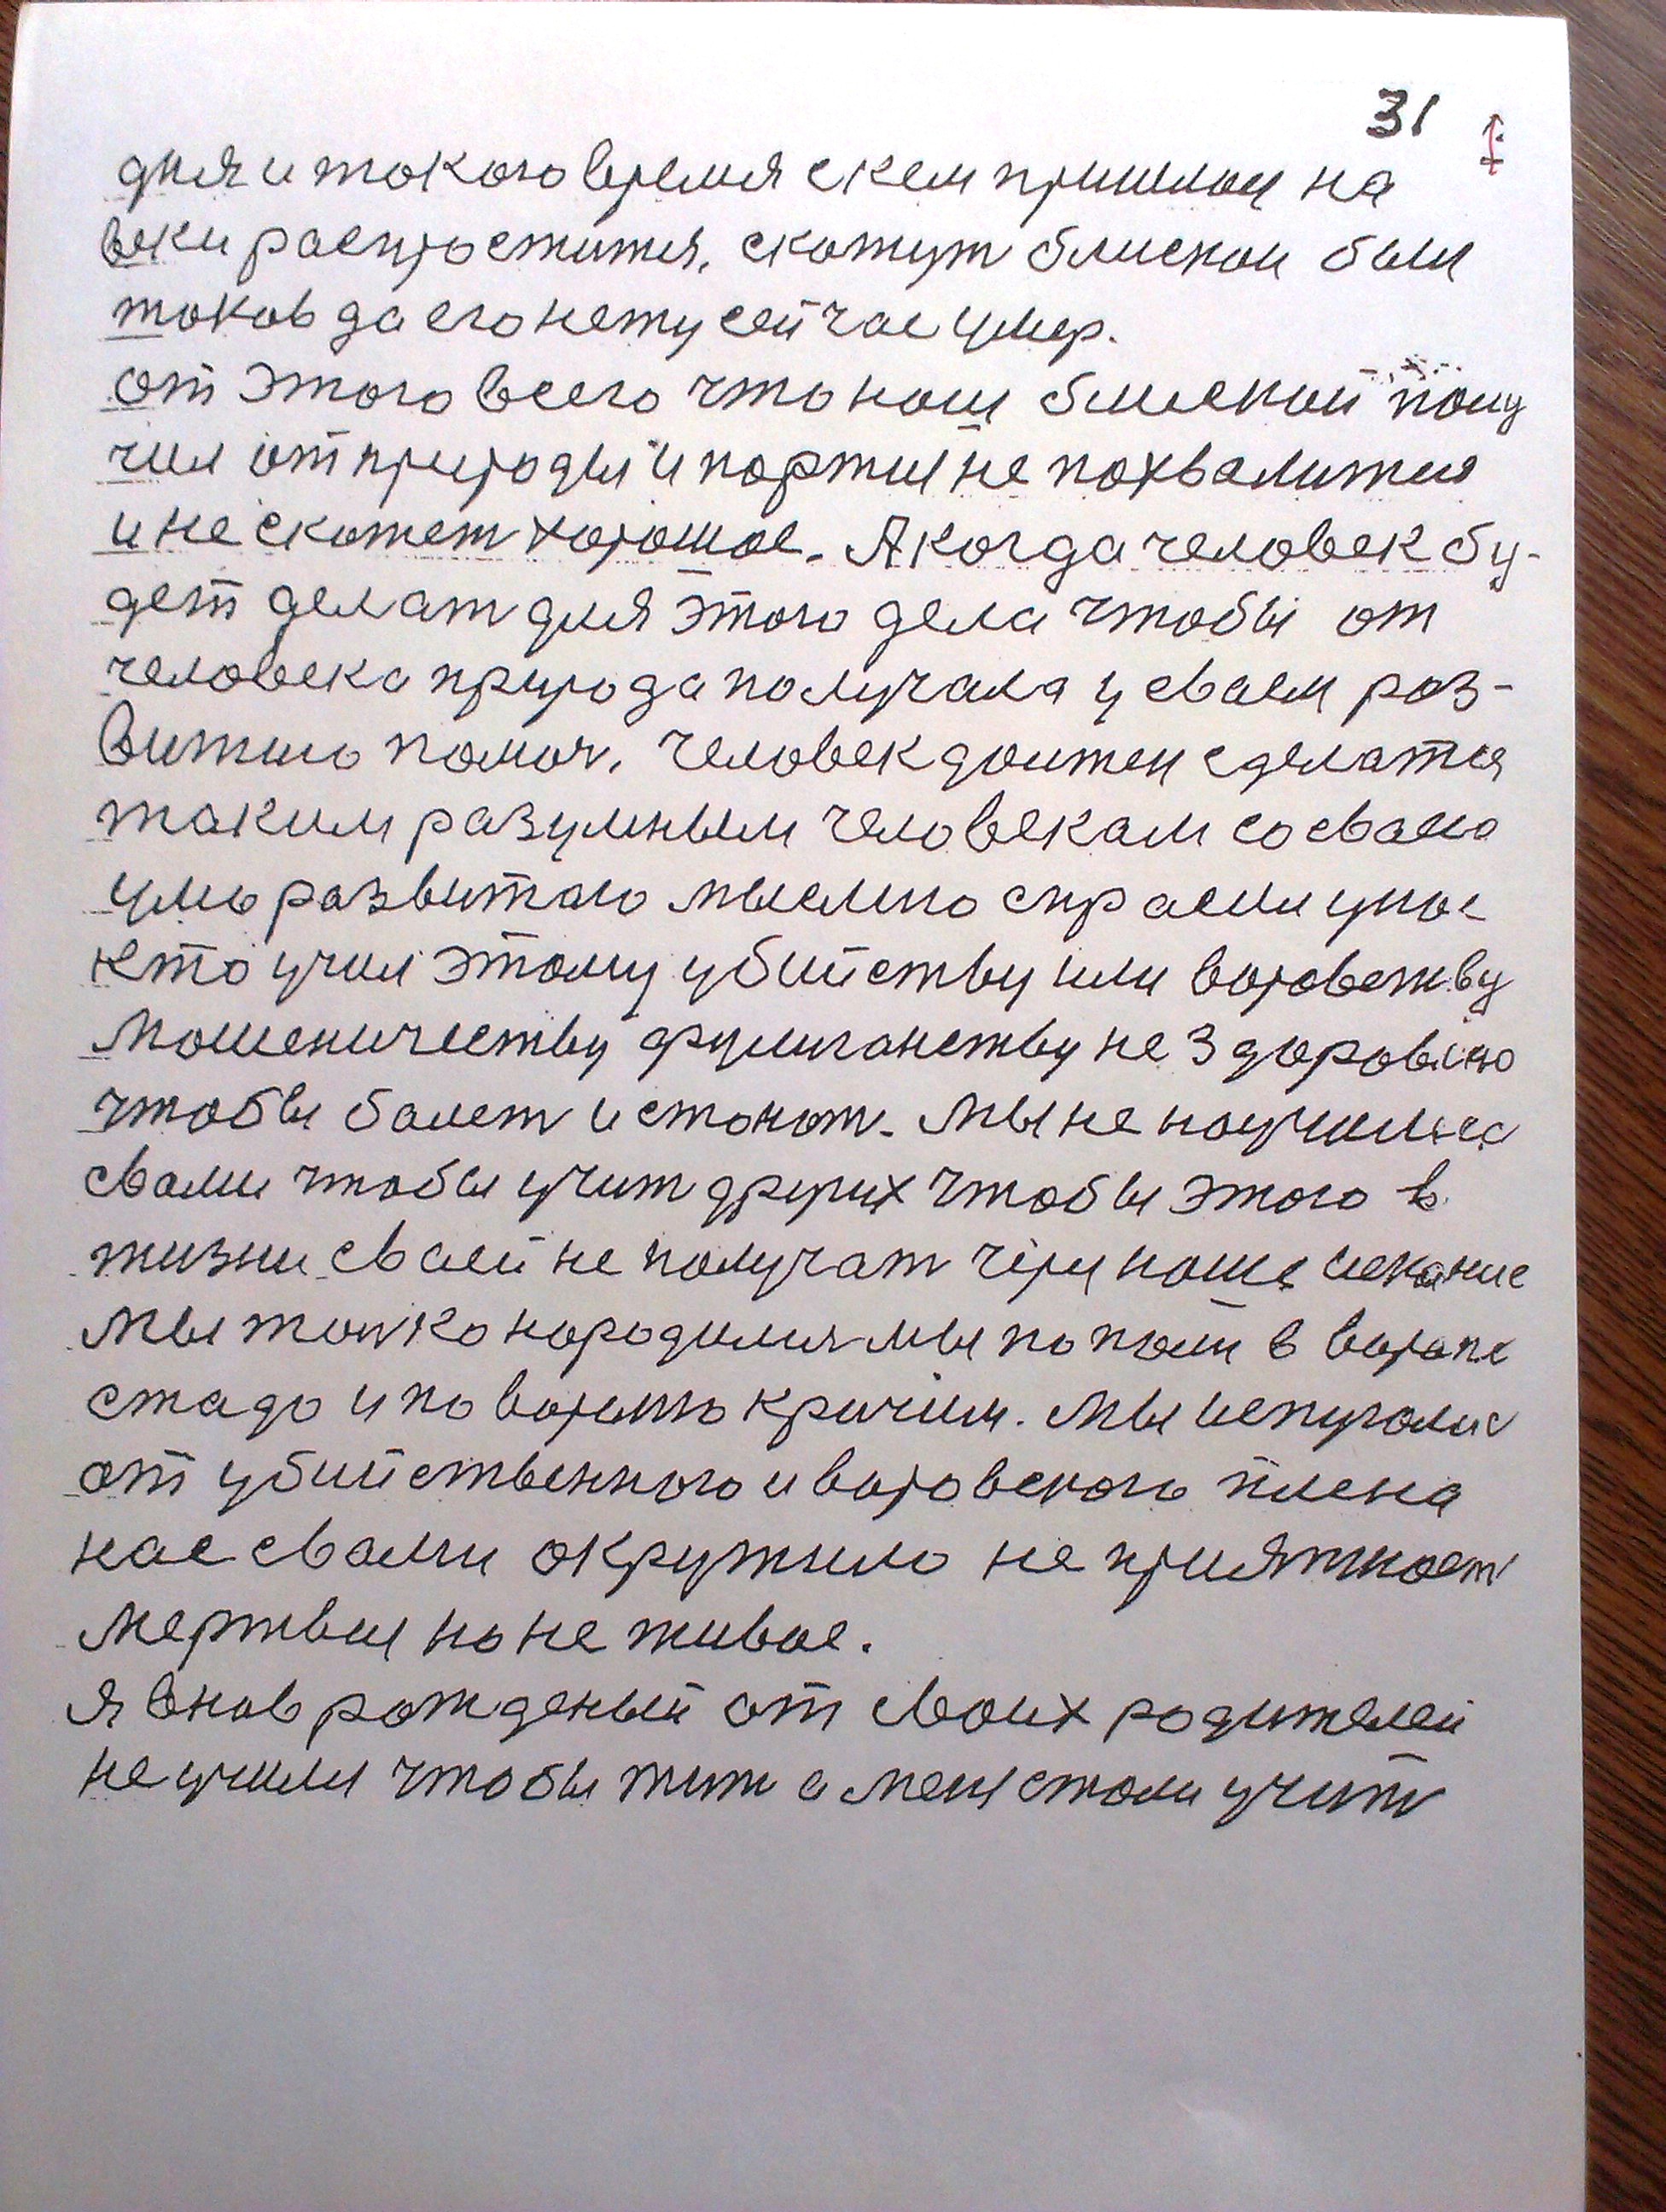 31
дня и токого время скем пришлоц на
веки распростития. скожут блиской был
токов да его нету сейчас умер.
от этого всего что нош блиской полу
чил от природы и портии не похвалитця
и не скожет хорошое. А когда человек бу-
дет делат для этого дела чтобы от
человека природа получала у своем роз-
витию помоч. человек должен сделатця
таким разумным человекам со свавo
умо развитаго мыслию спрасил унос
кто учил этому убийству или воровству
мошеничеству фулиганству не здоровию
чтобы балет и стонат. Мы не научились
свами чтобы учит других чтобы этого в
жизни сваей не получат чери ноше искание
Мы толко нородился мы попали в воропе
стадо и по ворьию кричим. Мы испуголис
от убийственного и воровского плена
нас свами окружило не приятност
мертвый но не живое.
я внов рожденый от своих родителей
не учили чтобы жит а меня стали учить